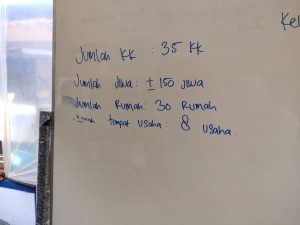 Kel
Jumlah KK : 35 KK.
Jumlah Jiwa : ± 150 Jiwa
Jumlah Rumah : 30 Rumah
tempat usaha : 8 usaha.